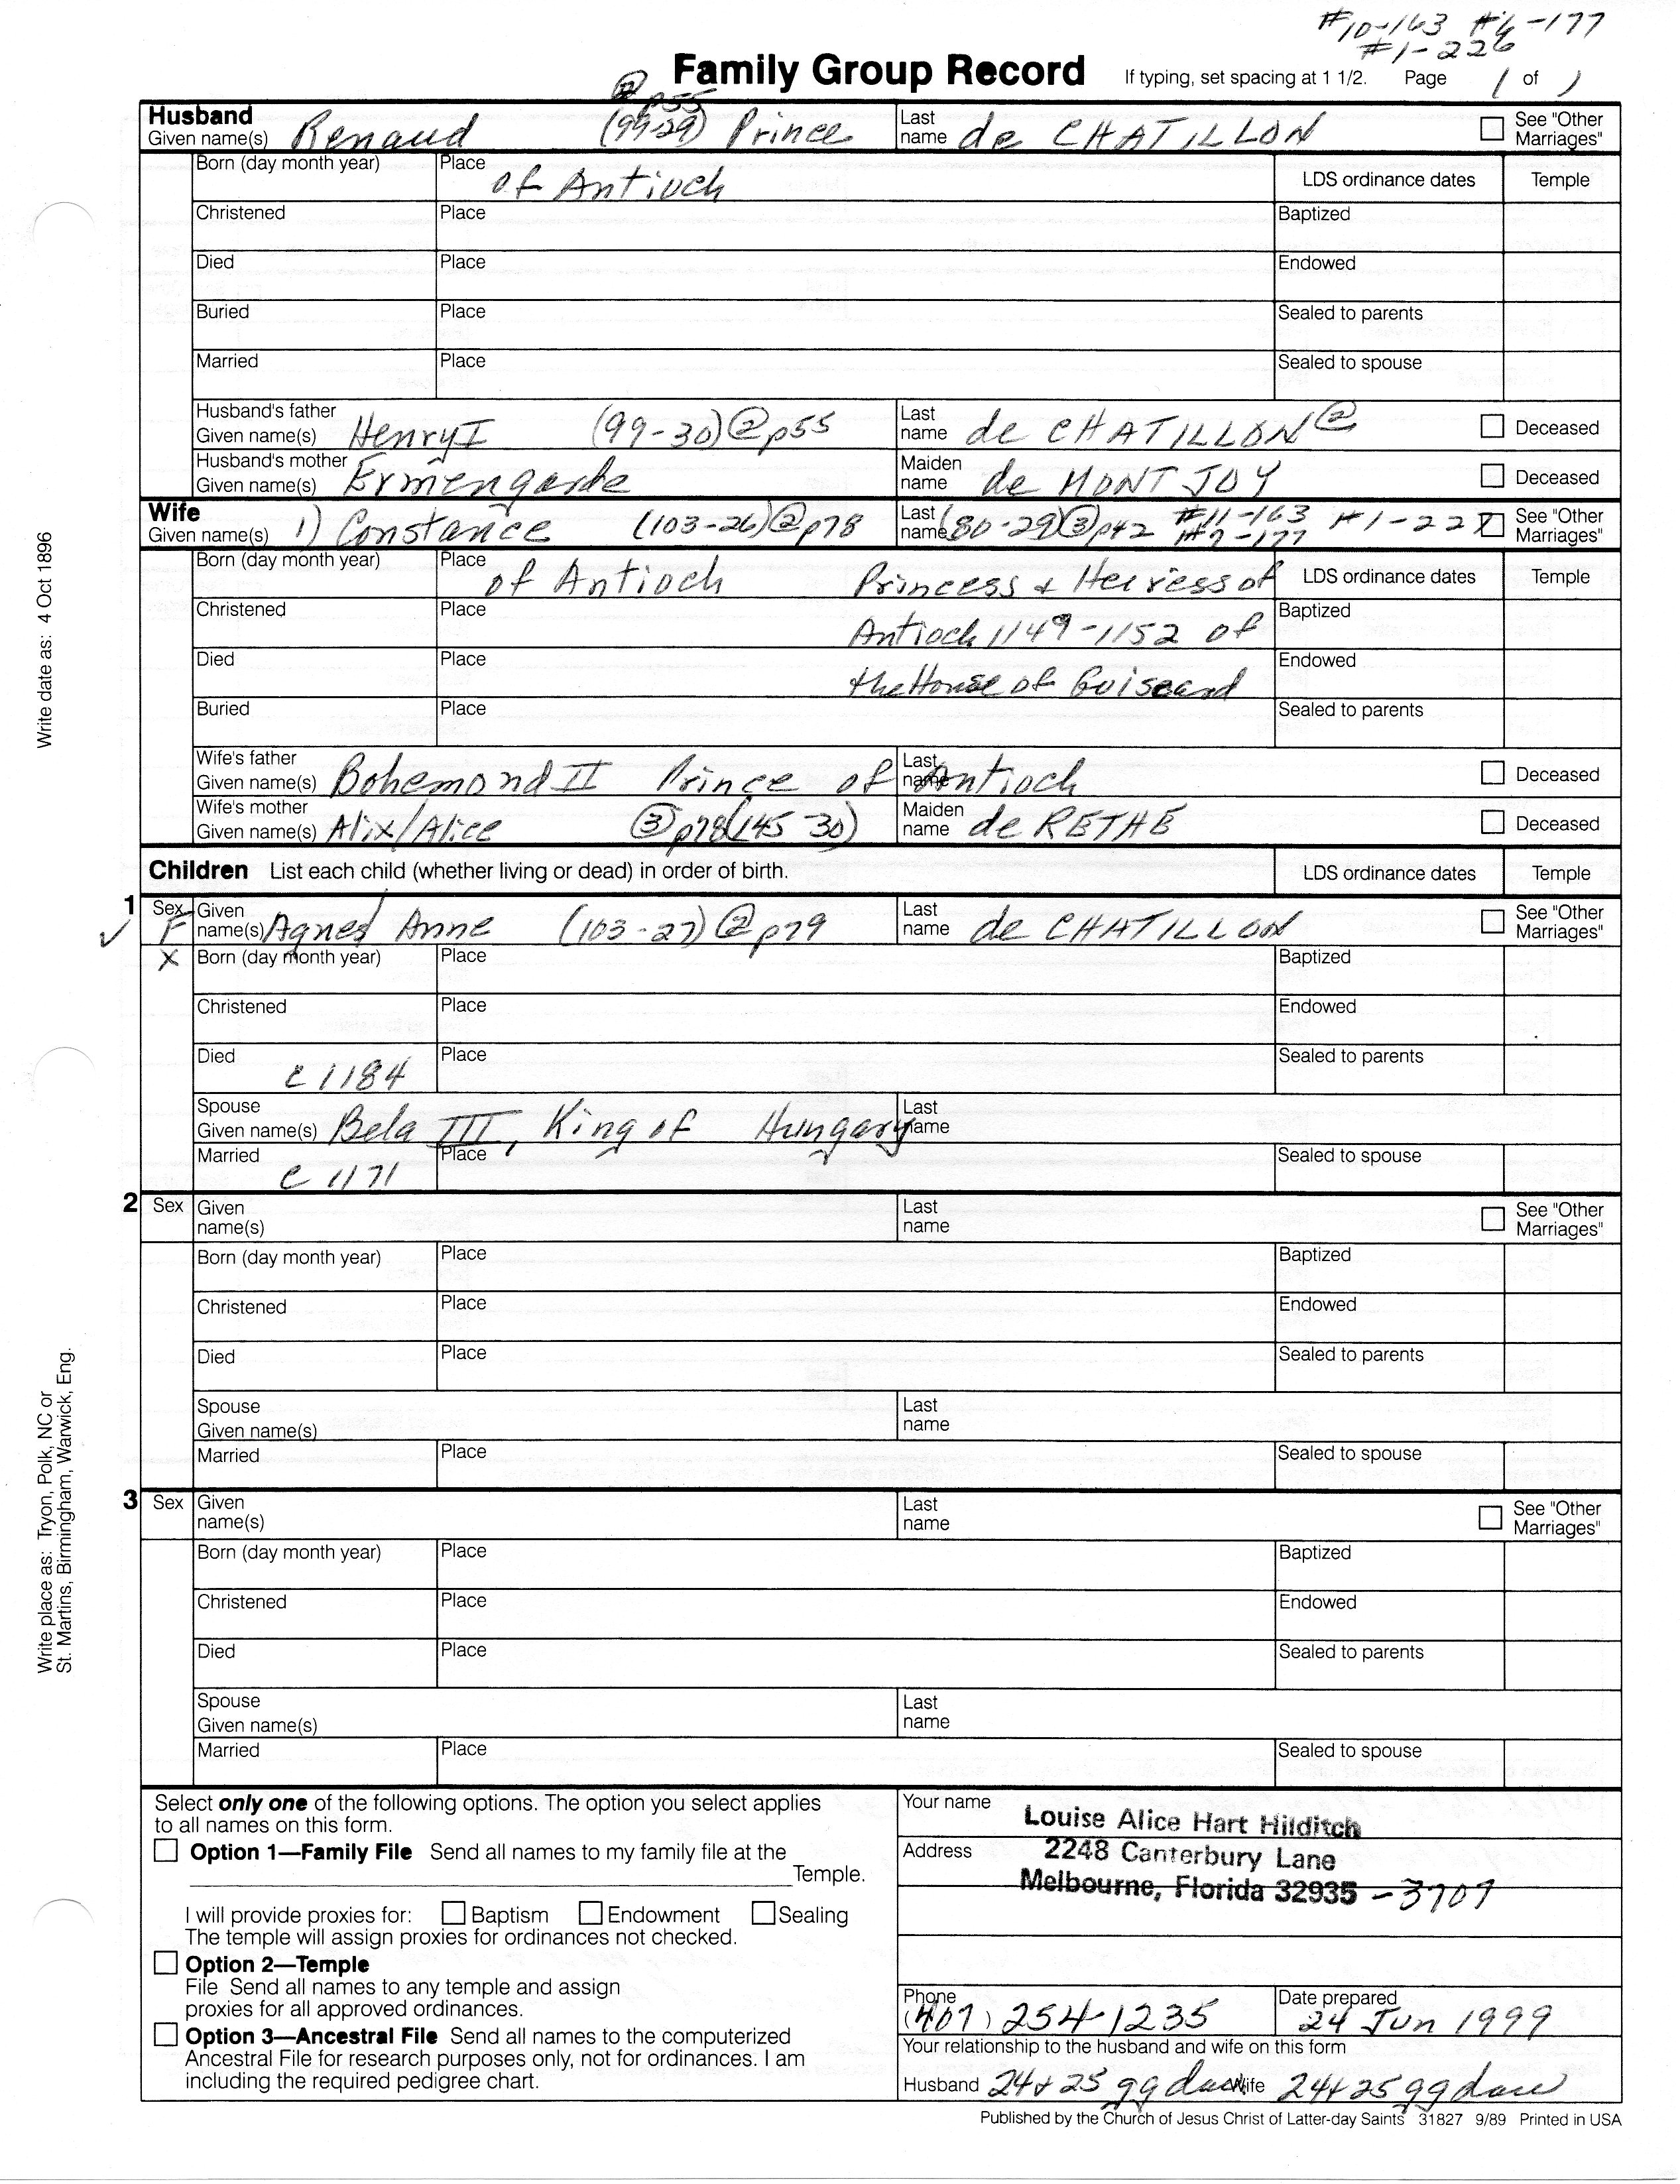 #10-163 #6-177
#1-226
Family Group Record If typing, set spacing at 1 1/2. Page 1 of 1
② p55
Husband
Given name(s) Renaud (99-29) Prince Last name de CHATILLON See "Other Marriages"
Born (day month year) Place of Antioch LDS ordinance dates Temple
Christened Place Baptized
Died Place Endowed
Buried Place Sealed to parents
Married Place Sealed to spouse
Husband's father
Given name(s) Henry I (99-30) ② p55 Last name de CHATILLON ② Deceased
Husband's mother
Given name(s) Ermengarde Maiden name de MONT JOY Deceased
Wife
Given name(s) 1) Constance (103-26) ② p78 Last name (80-29) ③ p42 #11-163 #7-177 #1-227 See "Other Marriages"
Born (day month year) Place of Antioch Princess & Heiress of LDS ordinance dates Temple
Christened Place Antioch 1149-1152 of Baptized
Died Place the House of Guiscard Endowed
Buried Place Sealed to parents
Wife's father
Given name(s) Bohemond II Prince of Antioch Last name Deceased
Wife's mother
Given name(s) Alix/Alice ③ p78 (145-30) Maiden name de RETHE Deceased
Children List each child (whether living or dead) in order of birth. LDS ordinance dates Temple
1 Sex F Given name(s) Agnes/Anne (103-27) ② p79 Last name de CHATILLON See "Other Marriages"
X Born (day month year) Place Baptized
Christened Place Endowed
Died c 1184 Place Sealed to parents
Spouse
Given name(s) Bela III, King of Hungary Last name
Married c 1171 Place Sealed to spouse
2 Sex Given name(s) Last name See "Other Marriages"
Born (day month year) Place Baptized
Christened Place Endowed
Died Place Sealed to parents
Spouse
Given name(s) Last name
Married Place Sealed to spouse
3 Sex Given name(s) Last name See "Other Marriages"
Born (day month year) Place Baptized
Christened Place Endowed
Died Place Sealed to parents
Spouse
Given name(s) Last name
Married Place Sealed to spouse
Select only one of the following options. The option you select applies
to all names on this form.
Option 1—Family File Send all names to my family file at the
Temple.
I will provide proxies for: Baptism Endowment Sealing
The temple will assign proxies for ordinances not checked.
Option 2—Temple
File Send all names to any temple and assign
proxies for all approved ordinances.
Option 3—Ancestral File Send all names to the computerized
Ancestral File for research purposes only, not for ordinances. I am
including the required pedigree chart.
Your name Louise Alice Hart Hilditch
Address 2248 Canterbury Lane
Melbourne, Florida 32935 -3707
Phone (407) 254-1235 Date prepared 24 Jun 1999
Your relationship to the husband and wife on this form
Husband 24&25 gg dau Wife 24&25 gg dau
Published by the Church of Jesus Christ of Latter-day Saints 31827 9/89 Printed in USA
Write date as: 4 Oct 1896
Write place as: Tryon, Polk, NC or
St. Martins, Birmingham, Warwick, Eng.